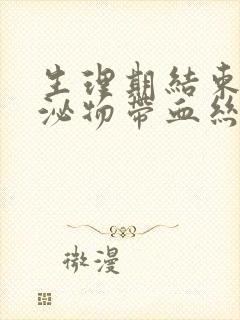 生理期結束
泌物帶血絲
微漫